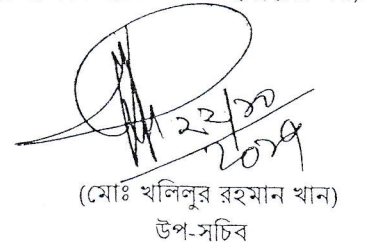 ২২/১০
২০১৭
(মোঃ খলিলুর রহমান খান)
উপ-সচিব